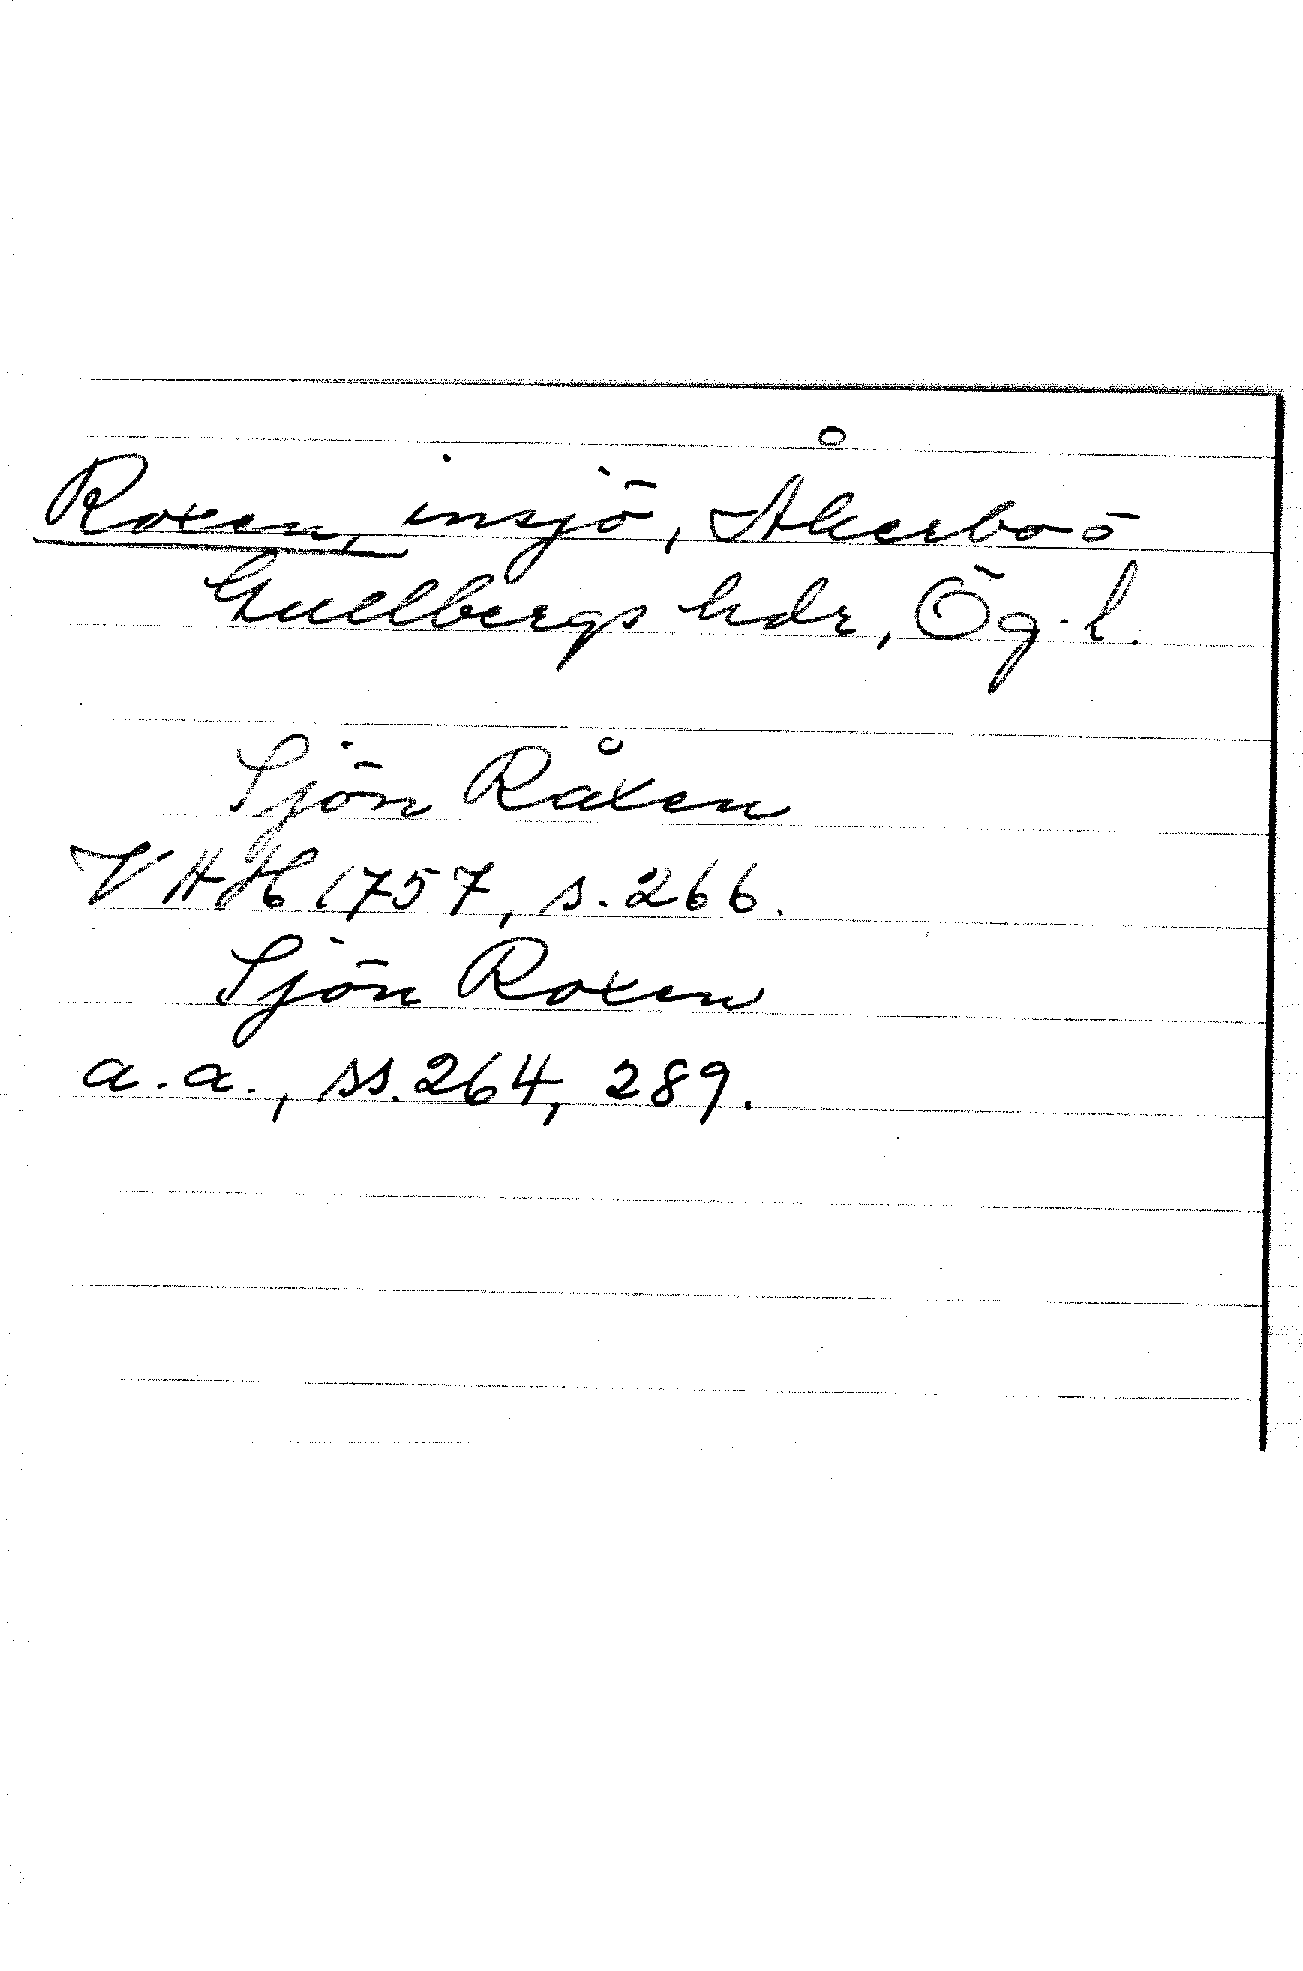 Roxen, insjö, Åkerbo o
Gullbergs hdr, Ög. l.
Sjön Råxen
VHH 1757, s. 266.
Sjön Roxen
a.a., ss. 264, 289.